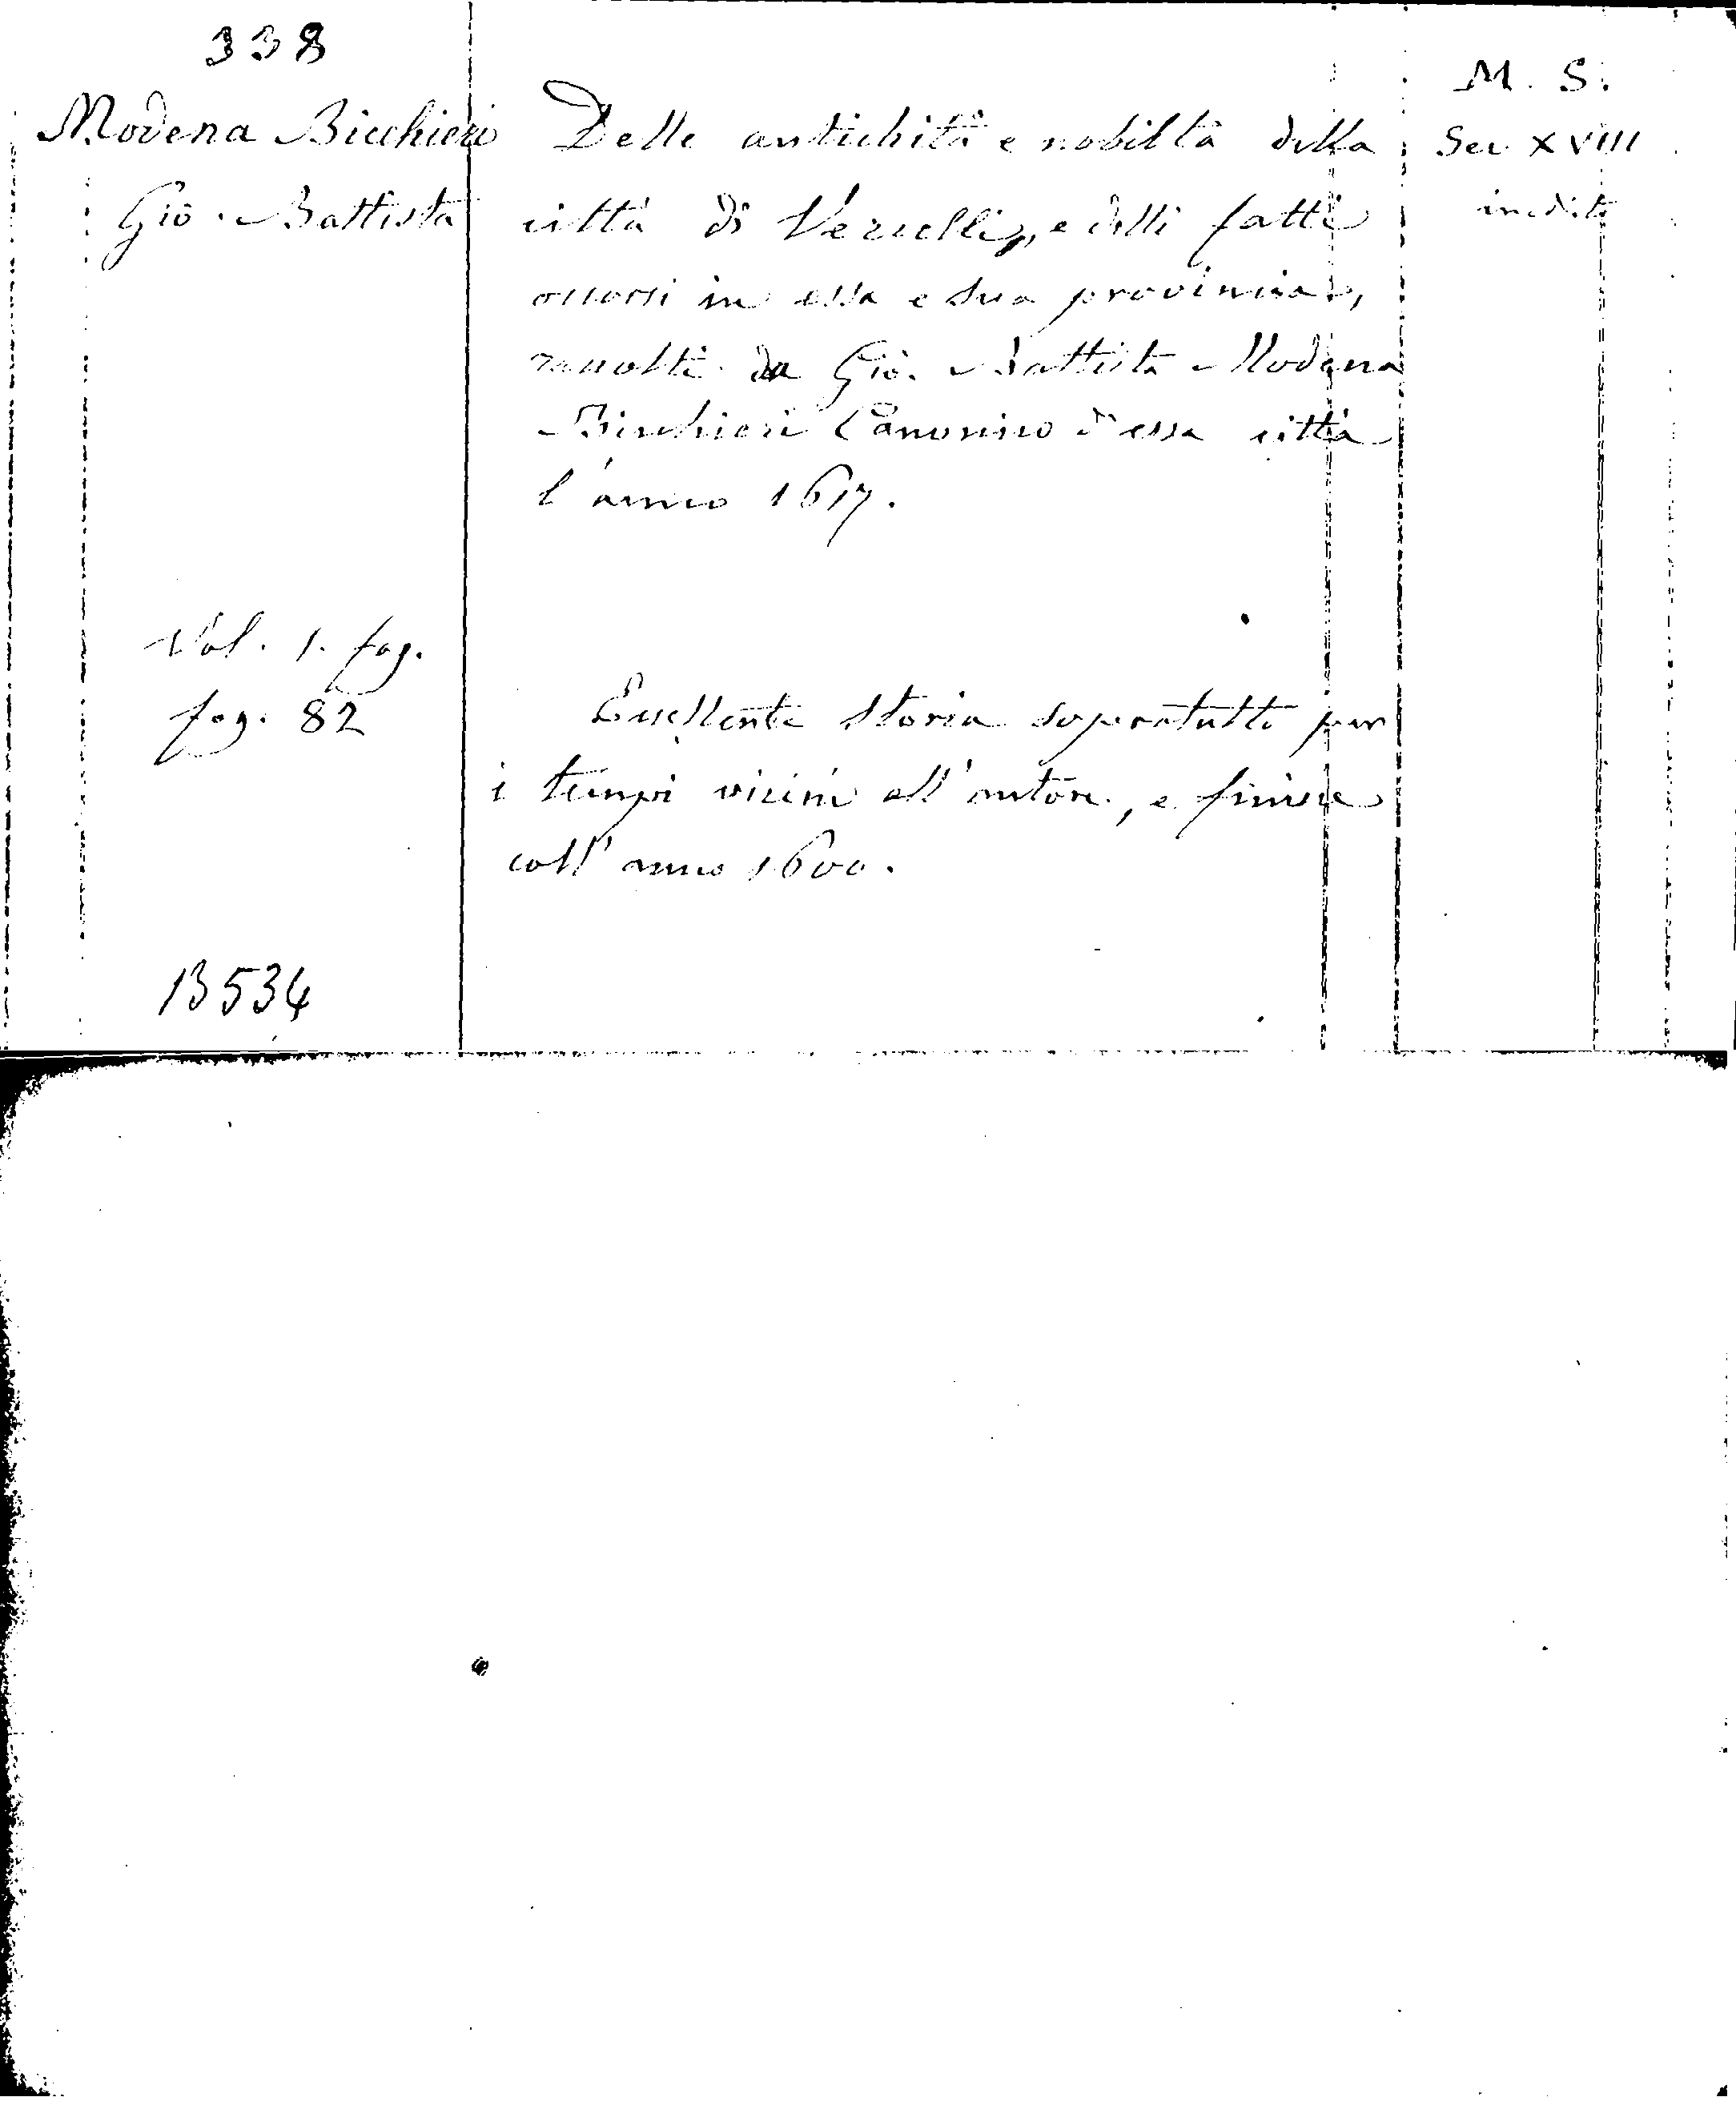 338
Modena Bicchieri
Gio. Battista
Delle antichità e nobiltà della
città di Vercelli, e delli fatti
occorsi in essa e sua provincia,
raccolti da Gio. Battista Modena
Bicchieri Canonico d'essa città
l'anno 1617.
M. S.
Sec XVIII
inedito
Vol. 1. fog.
fog. 82
Eccellente storia sopratutto per
i tempi vicini all'autore, e finisce
coll'anno 1600.
13534